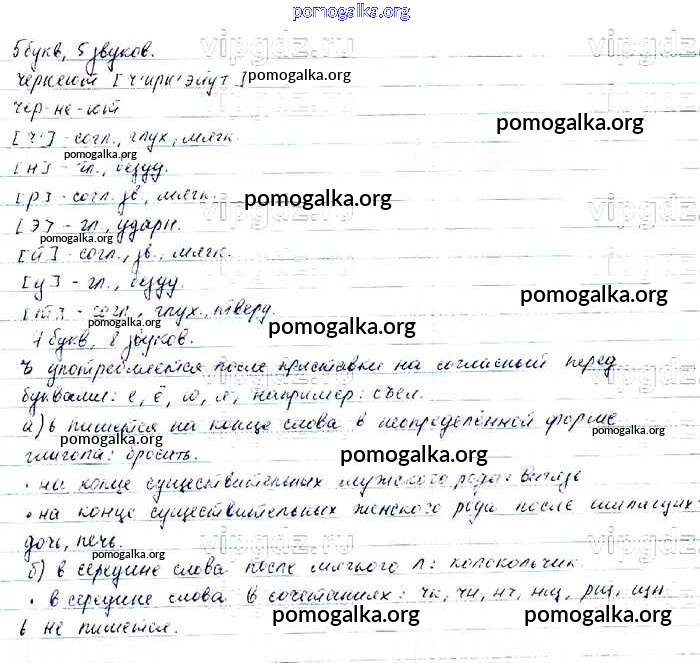 pomogalka.org
5 букв, 5 звуков.
vipgdz.ru
чернеют [ч'ирн'эйут]
pomogalka.org
чер-не-ют
pomogalka.org
[ч'] - согл., глух., мягк.
pomogalka.org
[и] - гл., безуд.
[р] - согл. зв., мягк.
pomogalka.org
vipgdz.ru
[э] - гл., ударн.
pomogalka.org
[й] - согл., зв., мягк.
[у] - гл., безуд.
pomogalka.org
[т] - согл., глух., тверд.
pomogalka.org
pomogalka.org
7 букв, 8 звуков.
ъ употребляется после приставки на согласный перед
буквами: е, ё, ю, я, например: съел.
а) ь пишется на конце слова в неопределённой форме
pomogalka.org
глагола: бросить.
pomogalka.org
• на конце существительных мужского рода:
• на конце существительных женского рода после шипящих:
дочь, печь.
pomogalka.org
б) в середине слова после мягкого л: колокольчик.
• в середине слова в сочетаниях: чк, чн, нч, нщ, рщ, щн
pomogalka.org
pomogalka.org
ь не пишется.